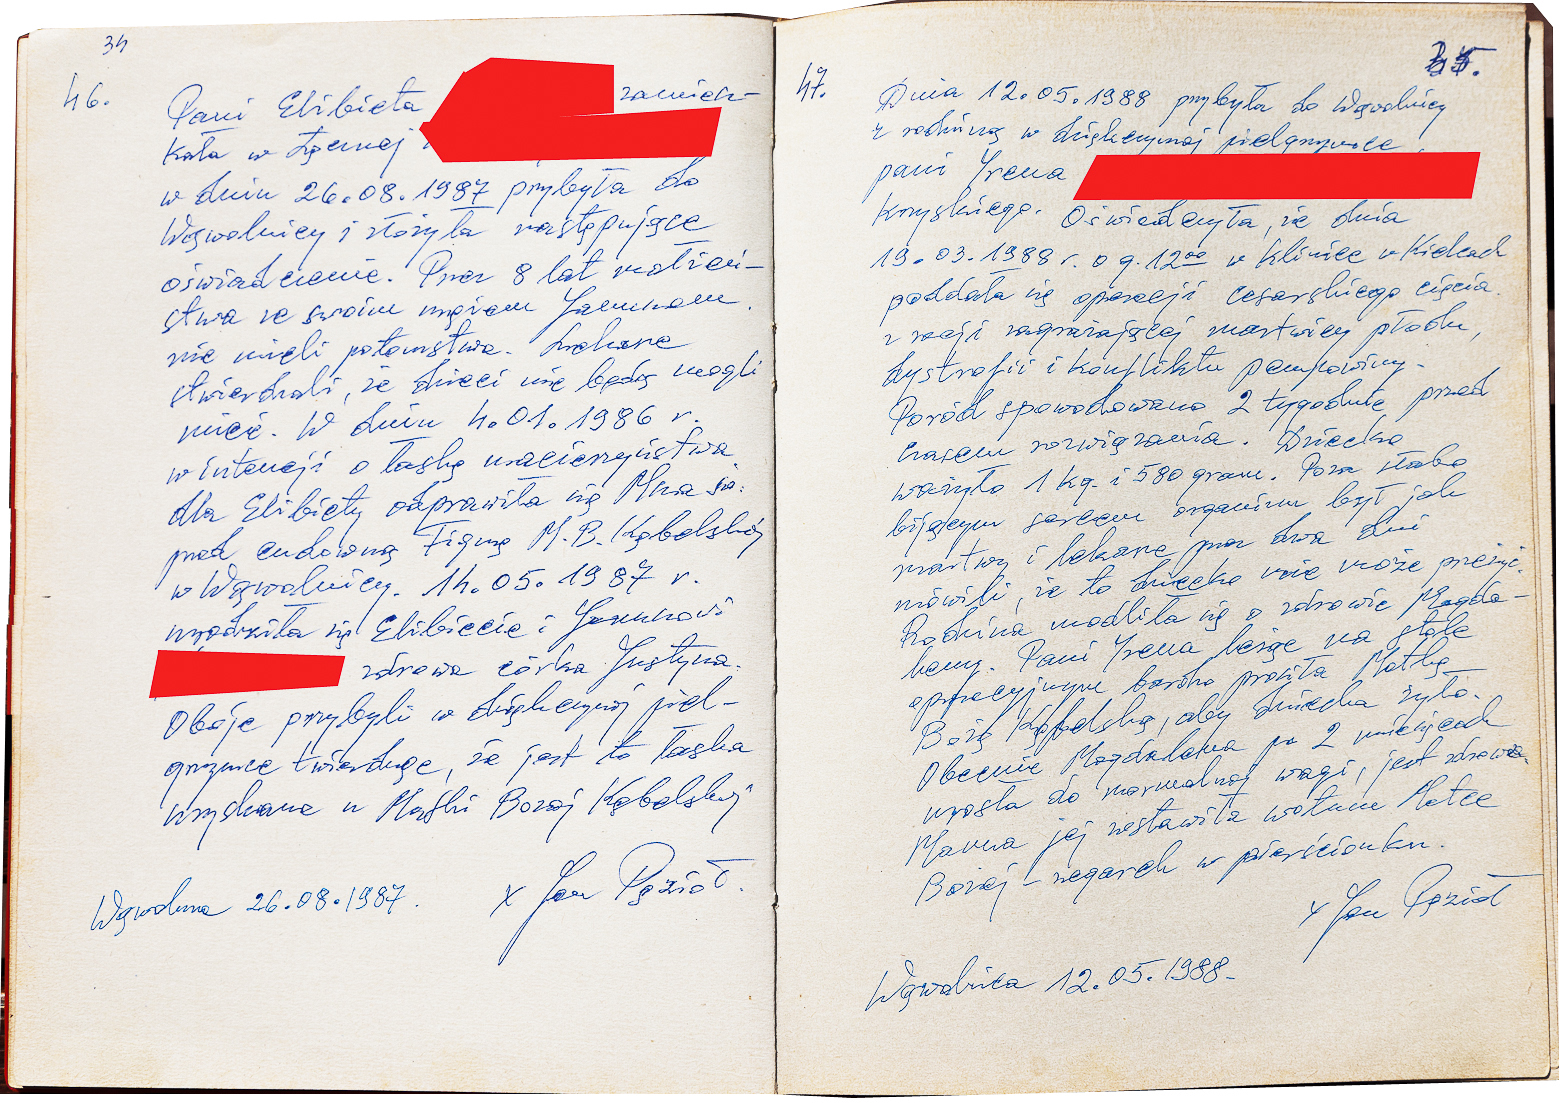 34
46.
Pani Elżbieta zamiesz-
kała w Łęcznej
w dniu 26.08.1987 przybyła do
Wąwolnicy i złożyła następujące
oświadczenie. Przez 8 lat małżeń-
stwa ze swoim mężem Januszem
nie mieli potomstwa. Lekarze
stwierdzali, że dzieci nie będą mogli
mieć. W dniu 4.01.1986 r.
w intencji o łaskę macierzyństwa
dla Elżbiety odprawiła się Msza św.
przed cudowną Figurą M.B. Kębelskiej
w Wąwolnicy. 14.05.1987 r.
urodziła się Elżbiecie i Januszowi
zdrowa córka Justyna.
Oboje przybyli w dziękczynnej piel-
grzymce twierdząc, że jest to łaska
uzyskana u Matki Bożej Kębelskiej
x Jan Pęzioł.
Wąwolnica 26.08.1987.
35.
47.
Dnia 12.05.1988 przybyła do Wąwolnicy
z rodziną w dziękczynnej pielgrzymce,
pani Irena
Koryskiego. Oświadczyła, że dnia
19.03.1988 r. o g. 12⁰⁰ w Klinice w Kielcach
poddała się operacji cesarskiego cięcia.
z racji zagrażającej martwicy płodu,
dystrofii i konfliktu pępowiny.
Poród spowodowano 2 tygodnie przed
czasem rozwiązania. Dziecko
ważyło 1 kg. i 580 gram. Poza słabo
bijącym sercem organizm był jak
martwy i lekarze przez dwa dni
mówili, że to dziecko nie może przeżyć.
Rodzina modliła się o zdrowie Magda-
leny. Pani Irena leżąc na stole
operacyjnym bardzo prosiła Matkę
Bożą Kębelską, aby dziecko żyło.
Obecnie Magdalena po 2 miesiącach
urosła do normalnej wagi, jest zdrowa.
Mama jej zostawiła wotum Matce
Bożej – zegarek w pierścionku.
x Jan Pęzioł
Wąwolnica 12.05.1988.